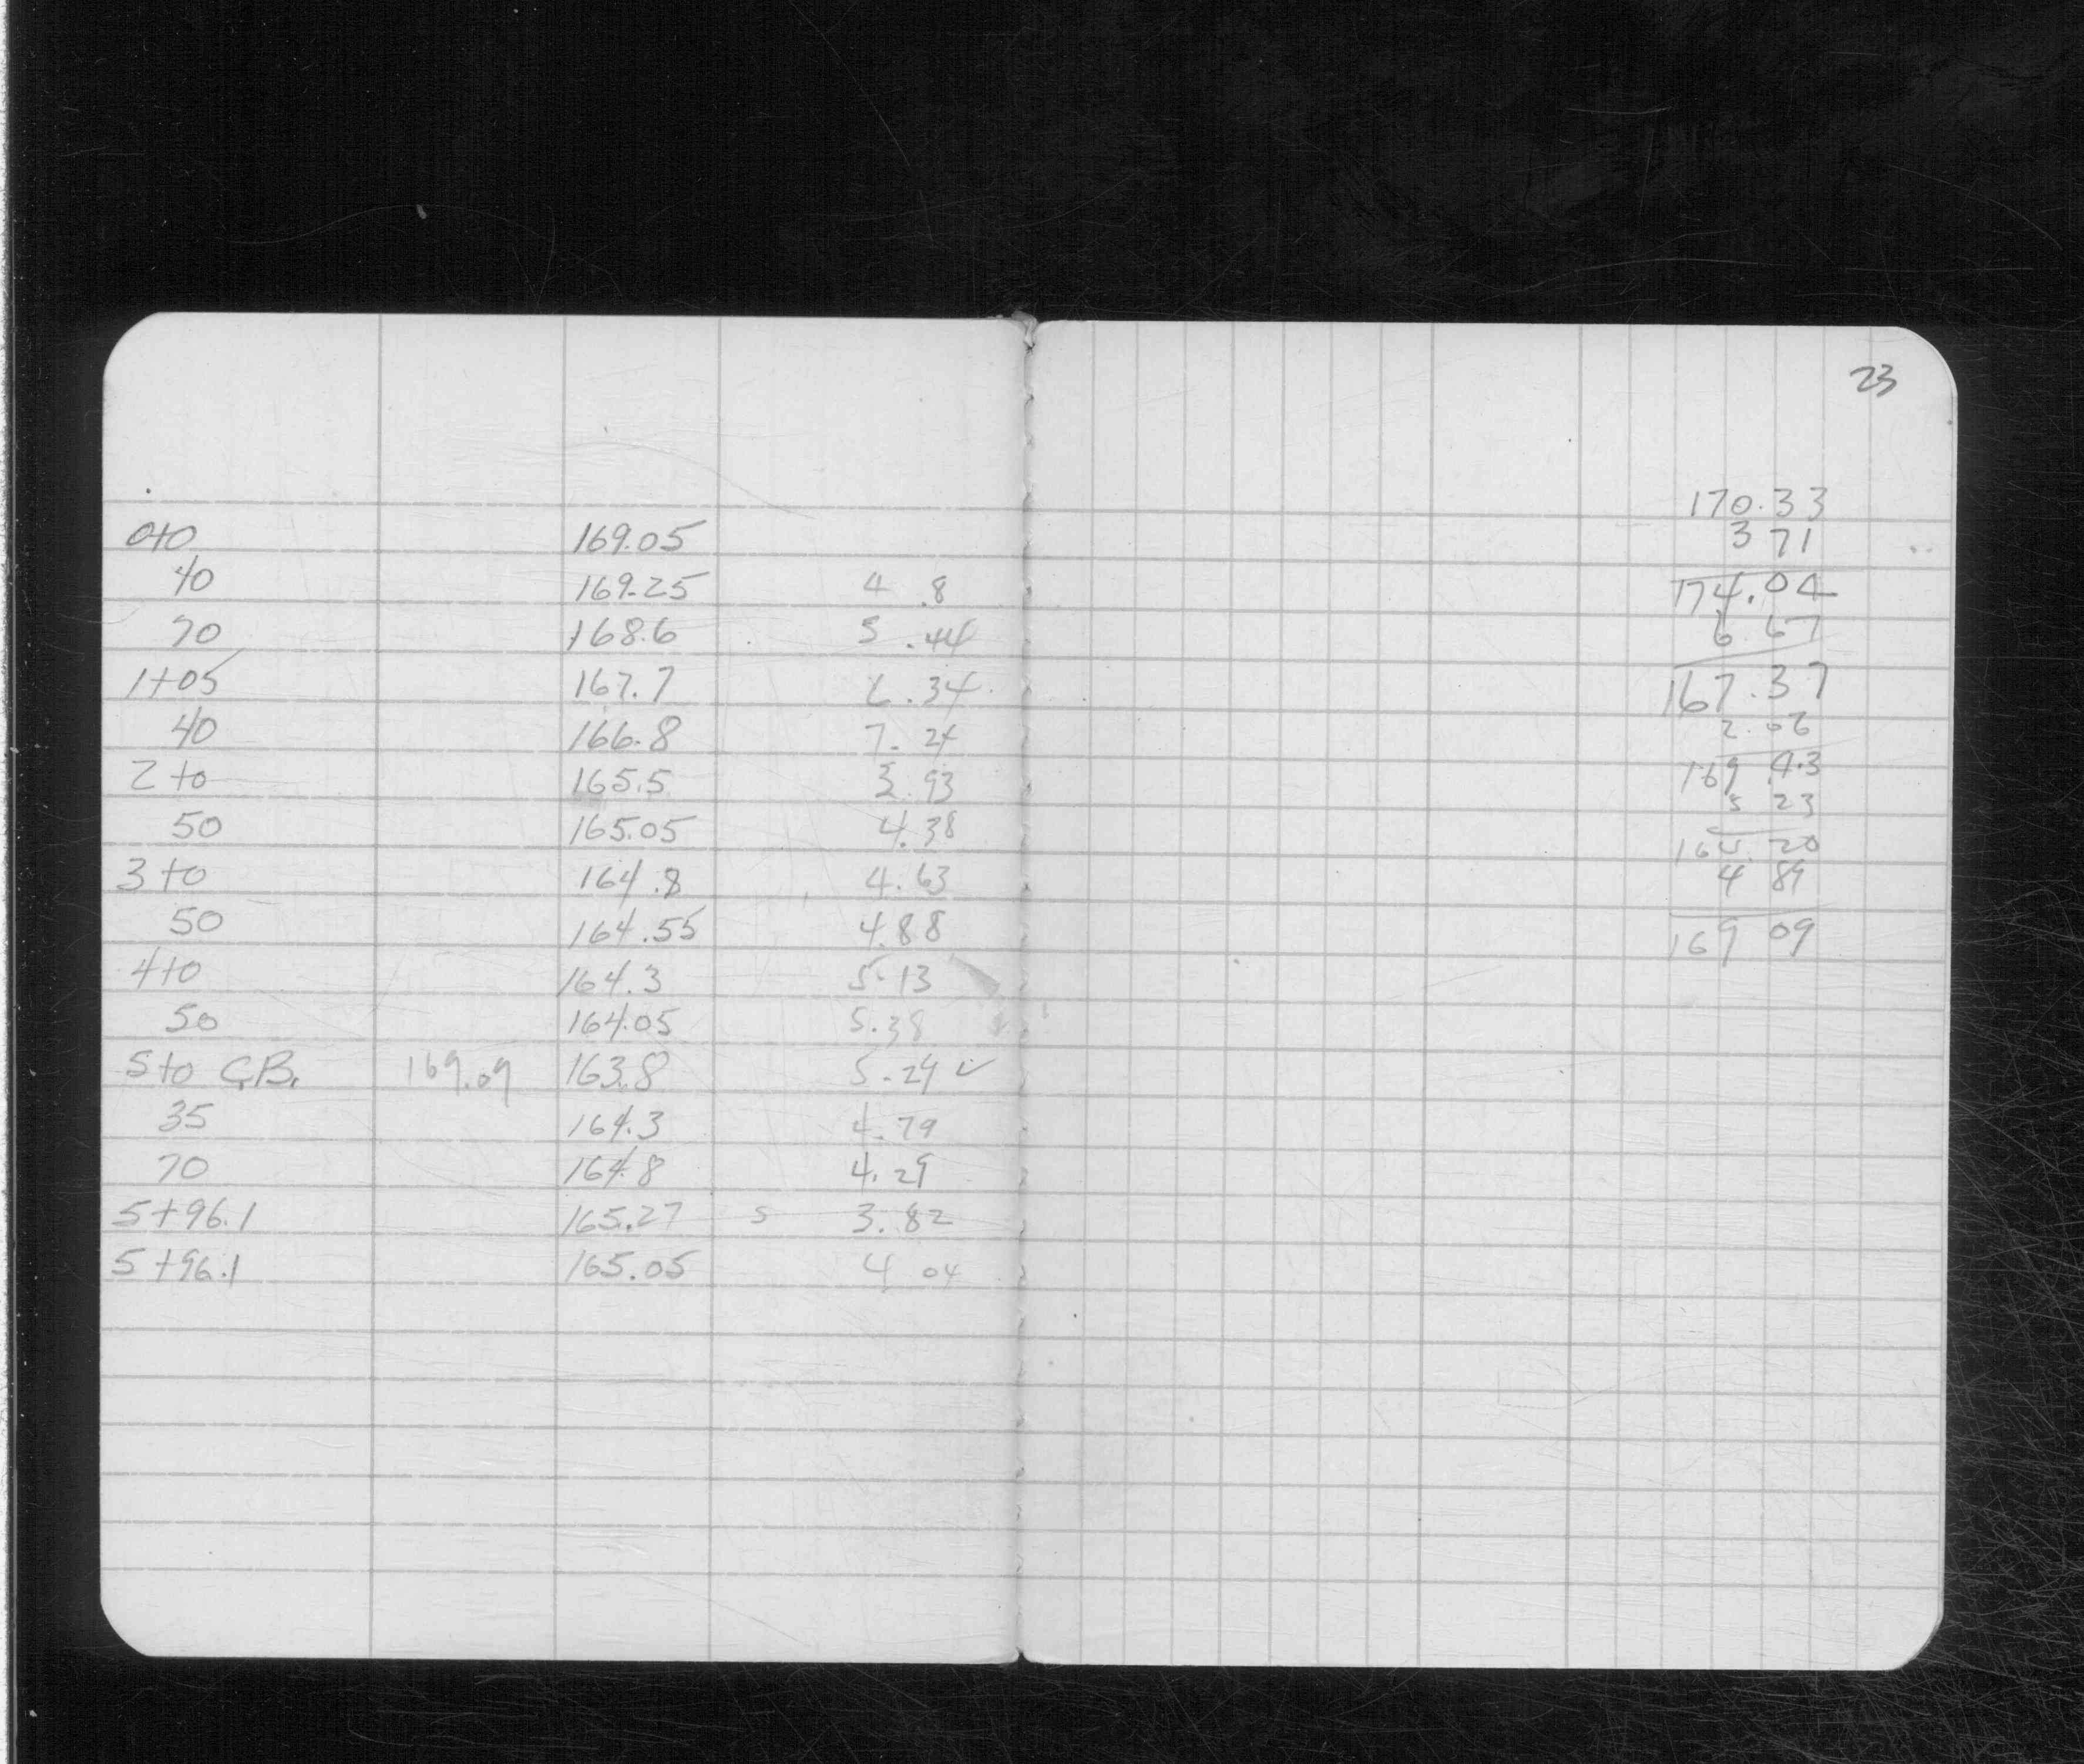 23
0+0 169.05
40 169.25 4 .8
70 168.6 5 .44
1+05 167.7 6.34
40 166.8 7.24
2+0 165.5 3.93
50 165.05 4.38
3+0 164.8 4.63
50 164.55 4.88
4+0 164.3 5.13
50 164.05 5.38
5+0 C.B. 169.09 163.8 5.29 ✓
35 164.3 4.79
70 164.8 4.29
5+96.1 165.27 5 3.82
5+96.1 165.05 4 04
170.33
3 71
174.04
6.67
167.37
2.06
169.43
5 23
164.20
4 89
169 09